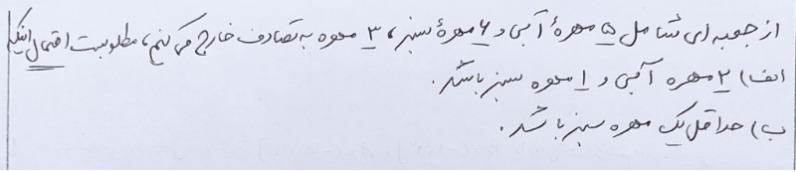 از جعبه ای شامل ۵ مهرهٔ آبی و ۶ مهرهٔ سبز، ۳ مهره به تصادف خارج می کنیم، مطلوبست احتمال اینکه
الف) ۲ مهره آبی و ۱ مهره سبز باشد.
ب) حداقل یک مهره سبز باشد.